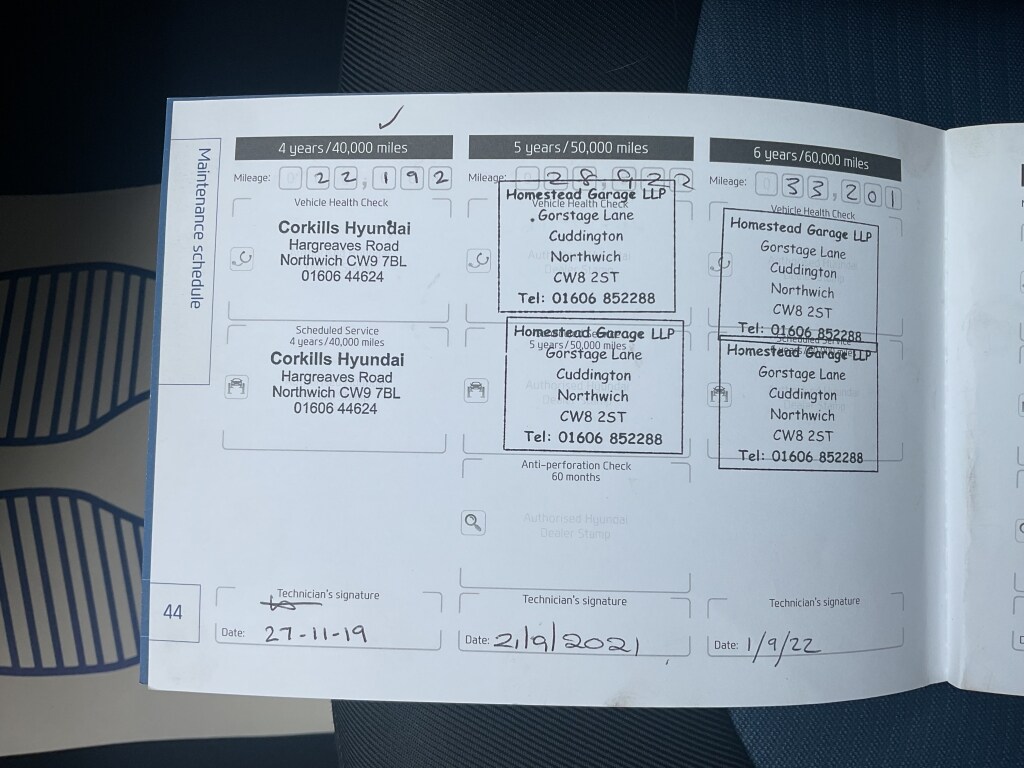 Maintenance schedule
4 years/40,000 miles
Mileage: 22,192
Vehicle Health Check
Corkills Hyundai
Hargreaves Road
Northwich CW9 7BL
01606 44624
Scheduled Service
4 years/40,000 miles
Corkills Hyundai
Hargreaves Road
Northwich CW9 7BL
01606 44624
Technician's signature
Date: 27-11-19
5 years/50,000 miles
Mileage: 28,922
Vehicle Health Check
Homestead Garage LLP
Gorstage Lane
Cuddington
Northwich
CW8 2ST
Tel: 01606 852288
Homestead Garage LLP
5 years/50,000 miles
Gorstage Lane
Cuddington
Northwich
CW8 2ST
Tel: 01606 852288
Anti-perforation Check
60 months
Authorised Hyundai
Dealer Stamp
Technician's signature
Date: 2/9/2021
6 years/60,000 miles
Mileage: 33,201
Vehicle Health Check
Homestead Garage LLP
Gorstage Lane
Cuddington
Northwich
CW8 2ST
Tel: 01606 852288
Scheduled Service
Homestead Garage LLP
Gorstage Lane
Cuddington
Northwich
CW8 2ST
Tel: 01606 852288
Technician's signature
Date: 1/9/22
44